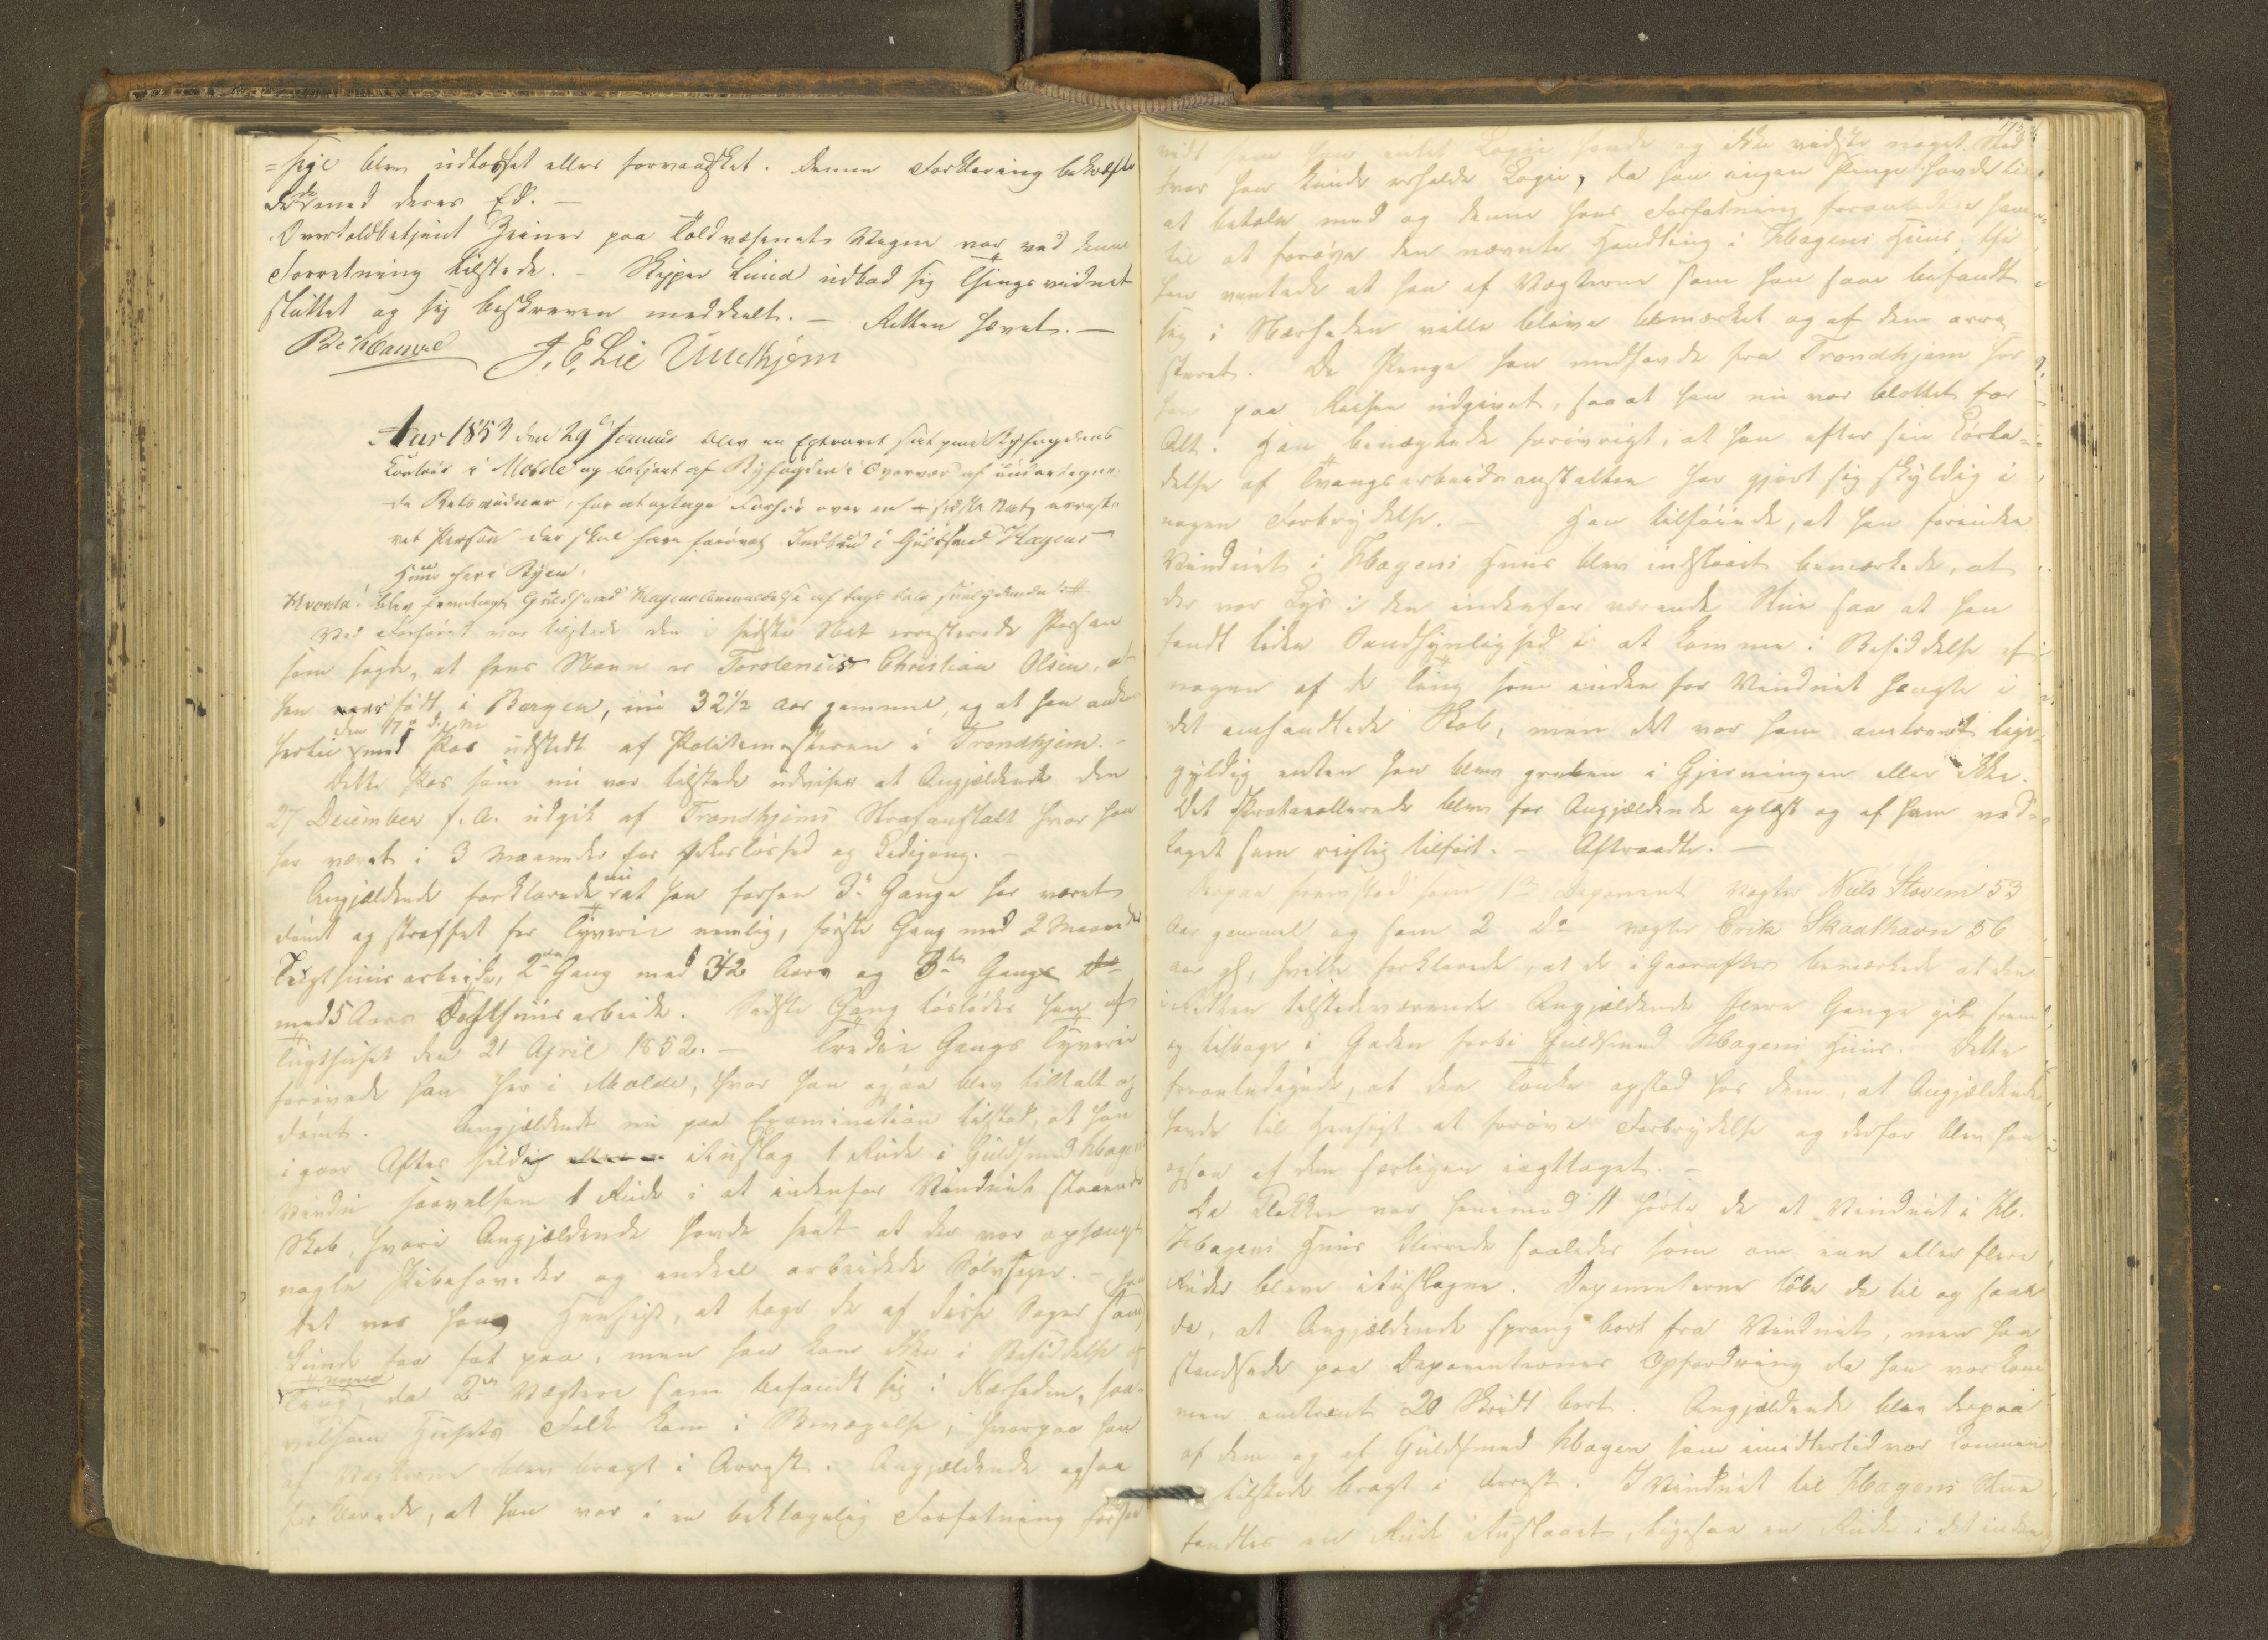 =fige blev udkastet eller forvansket. Denne Forklaring bekræfte
de med deres Ed. –
Overtoldbetjent Zeiner paa Toldvæsenets Vegne var ved denne
Forretning tilstede. – Skipper Lund udbad sig Thingsvidnet
sluttet og sig beskreven meddeelt. – Retten hævet. –
J. E. Lie Unethjem
Aar 1853 den 29 Januar blev en Extraret sat paa Byfogdens
Contoir i Molde og betjent af Byfogden i Overvær af undertegne-
de Retsvidner, for at optage Forhør over en sidste Nat arreste-
ret Person der skal have forøvet Indbrud i Guldsmed Hagens
Huus her i Byen.
Hvorda! blev fremlagt Guldsmed Hagens Anmeldelse af Dags Dato saalydende :#
Ved Forhøret var tilstede den i sidste Nat arresterede Person
som sagde, at hans Navn er Torstenius Christian Olsen, at
han er født i Bergen, nu 32½ Aar gammel, og at han ankom
hertil den 17de ds. med Pas udstedt af Politimesteren i Trondhjem. –
Dette Pas som nu var tilstede udviser at Angjældende den
27 December f. A. udgik af Trondhjems Strafanstalt hvor han
har været i 3 Maaneder for Løsløshed og Ledigang. –
Angjældende forklarede nu at han forhen 3de Gange har været
dømt og straffet for Tyverie nemlig, første Gang med 2 Maaneders
Tugthuusarbeide, 2den Gang med 3½ Aars og 3die Gang
med 5 Aars Tugthuusarbeide. Sidste Gang løslodes han af
Tugthuset den 21 April 1852. – Tredie Gangs Tyverie
forøvede han her i Molde, hvor han ogsaa blev tiltalt og
dømt. Angjældende nu paa Examination tilstod, at han
i gaar Aftes sildig ituslog 1 Rude i Guldsmed Hagens
Vindue saavelsom 1 Rude i et indenfor Vinduet staaende
Skab, hvori Angjældende havde seet at der var ophængt
nogle Pibehoveder og endeel arbeidede Sølvsager. –
Det var hans Hensigt, at tage de af disse Sager som han
kunde faa fat paa, men han kom ikke i Besiddelse af
nogen Ting, da 2de Vægtere som befandt sig i Nærheden, saa-
velsom Husets Folk kom i Bevægelse, hvorpaa han
af Vægterne blev bragt i Arrest. Angjældende ogsaa
forklarede, at han var i en beklagelig Forfatning forsaa
173
vidt som han intet Logie havde og ikke vidste noget Sted
hvor han kunde erholde Logie, da han ingen Penge havde til
at betale med og denne hans Forfatning foranledede ham
til at forøve den nævnte Handling i Hagens Huus, thi
han ventede at han af Vægterne som han saae befandt
sig i Nærheden vilde blive bemærket og af dem arre-
steret. De Penge han medhavde fra Trondhjem har
han paa Reisen udgivet, saa at han nu var blottet for
Alt. Han benægtede forøvrigt, at han efter sin Losla-
delse af Tvangsarbeidsanstalten har gjort sig skyldig i
nogen Forbrydelse. – Han tilføiede, at han forinden
Vinduet i Hagens Huus blev indslaaet bemærkede, at
der var Lys i den indenfor værende Stue saa at han
fandt liden Sandsynlighed i at komme i Besiddelse af
nogen af de Ting som inden for Vinduet hængte i
det omhandlede Skab, men det var ham omtrent lige-
gyldig enten han blev greben i Gjerningen eller ikke.
Det Protokollerede blev for Angjældende oplæst og af ham ved-
taget som rigtig tilført. – Aftraadte. –
Derpaa fremstod som 1ste Deponent Vægter Niels Stovem 53
Aar gammel og som 2 do Vægter Erik Skaalhavn 56
Aar gl, hvilke forklarede, at de i Gaaraftes bemærkede at den
i Retten tilstedeværende Angjældende flere Gange gik frem
og tilbage i Gaden forbi Guldsmed Hagens Huus. Dette
foranledigede, at den Tanke opstod hos dem, at Angjældende
havde til Hensigt at forøve Forbrydelse og derfor blev han
ogsaa af dem særligen iagttaget. –
Da Klokken var henimod 11 hørte de at Vinduet i
Hagens Huus klirrede saaledes som om een eller flere
Ruder bleve ituslagne. Deponenterne løbe da til og saae
da, at Angjældende sprang bort fra Vinduet, men han
standsede paa Deponenternes Opfordring da han var kom-
men omtrent 20 Skridt bort. Angjældende blev derpaa
af dem og af Guldsmed Hagen som imidlertid var kommen
tilstede bragt i Arrest. I Vinduet til Hagens Stue
fandtes en Rude ituslaaet, ligesaa en Rude i det inden